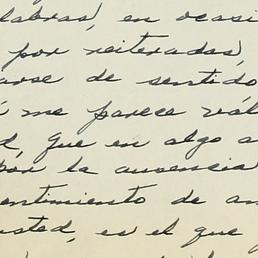 labras, en ocasi
por reiteradas,
arse de sentido
me parece vál
d, que en algo a
por la ausencia
entimiento de am
usted, es el que